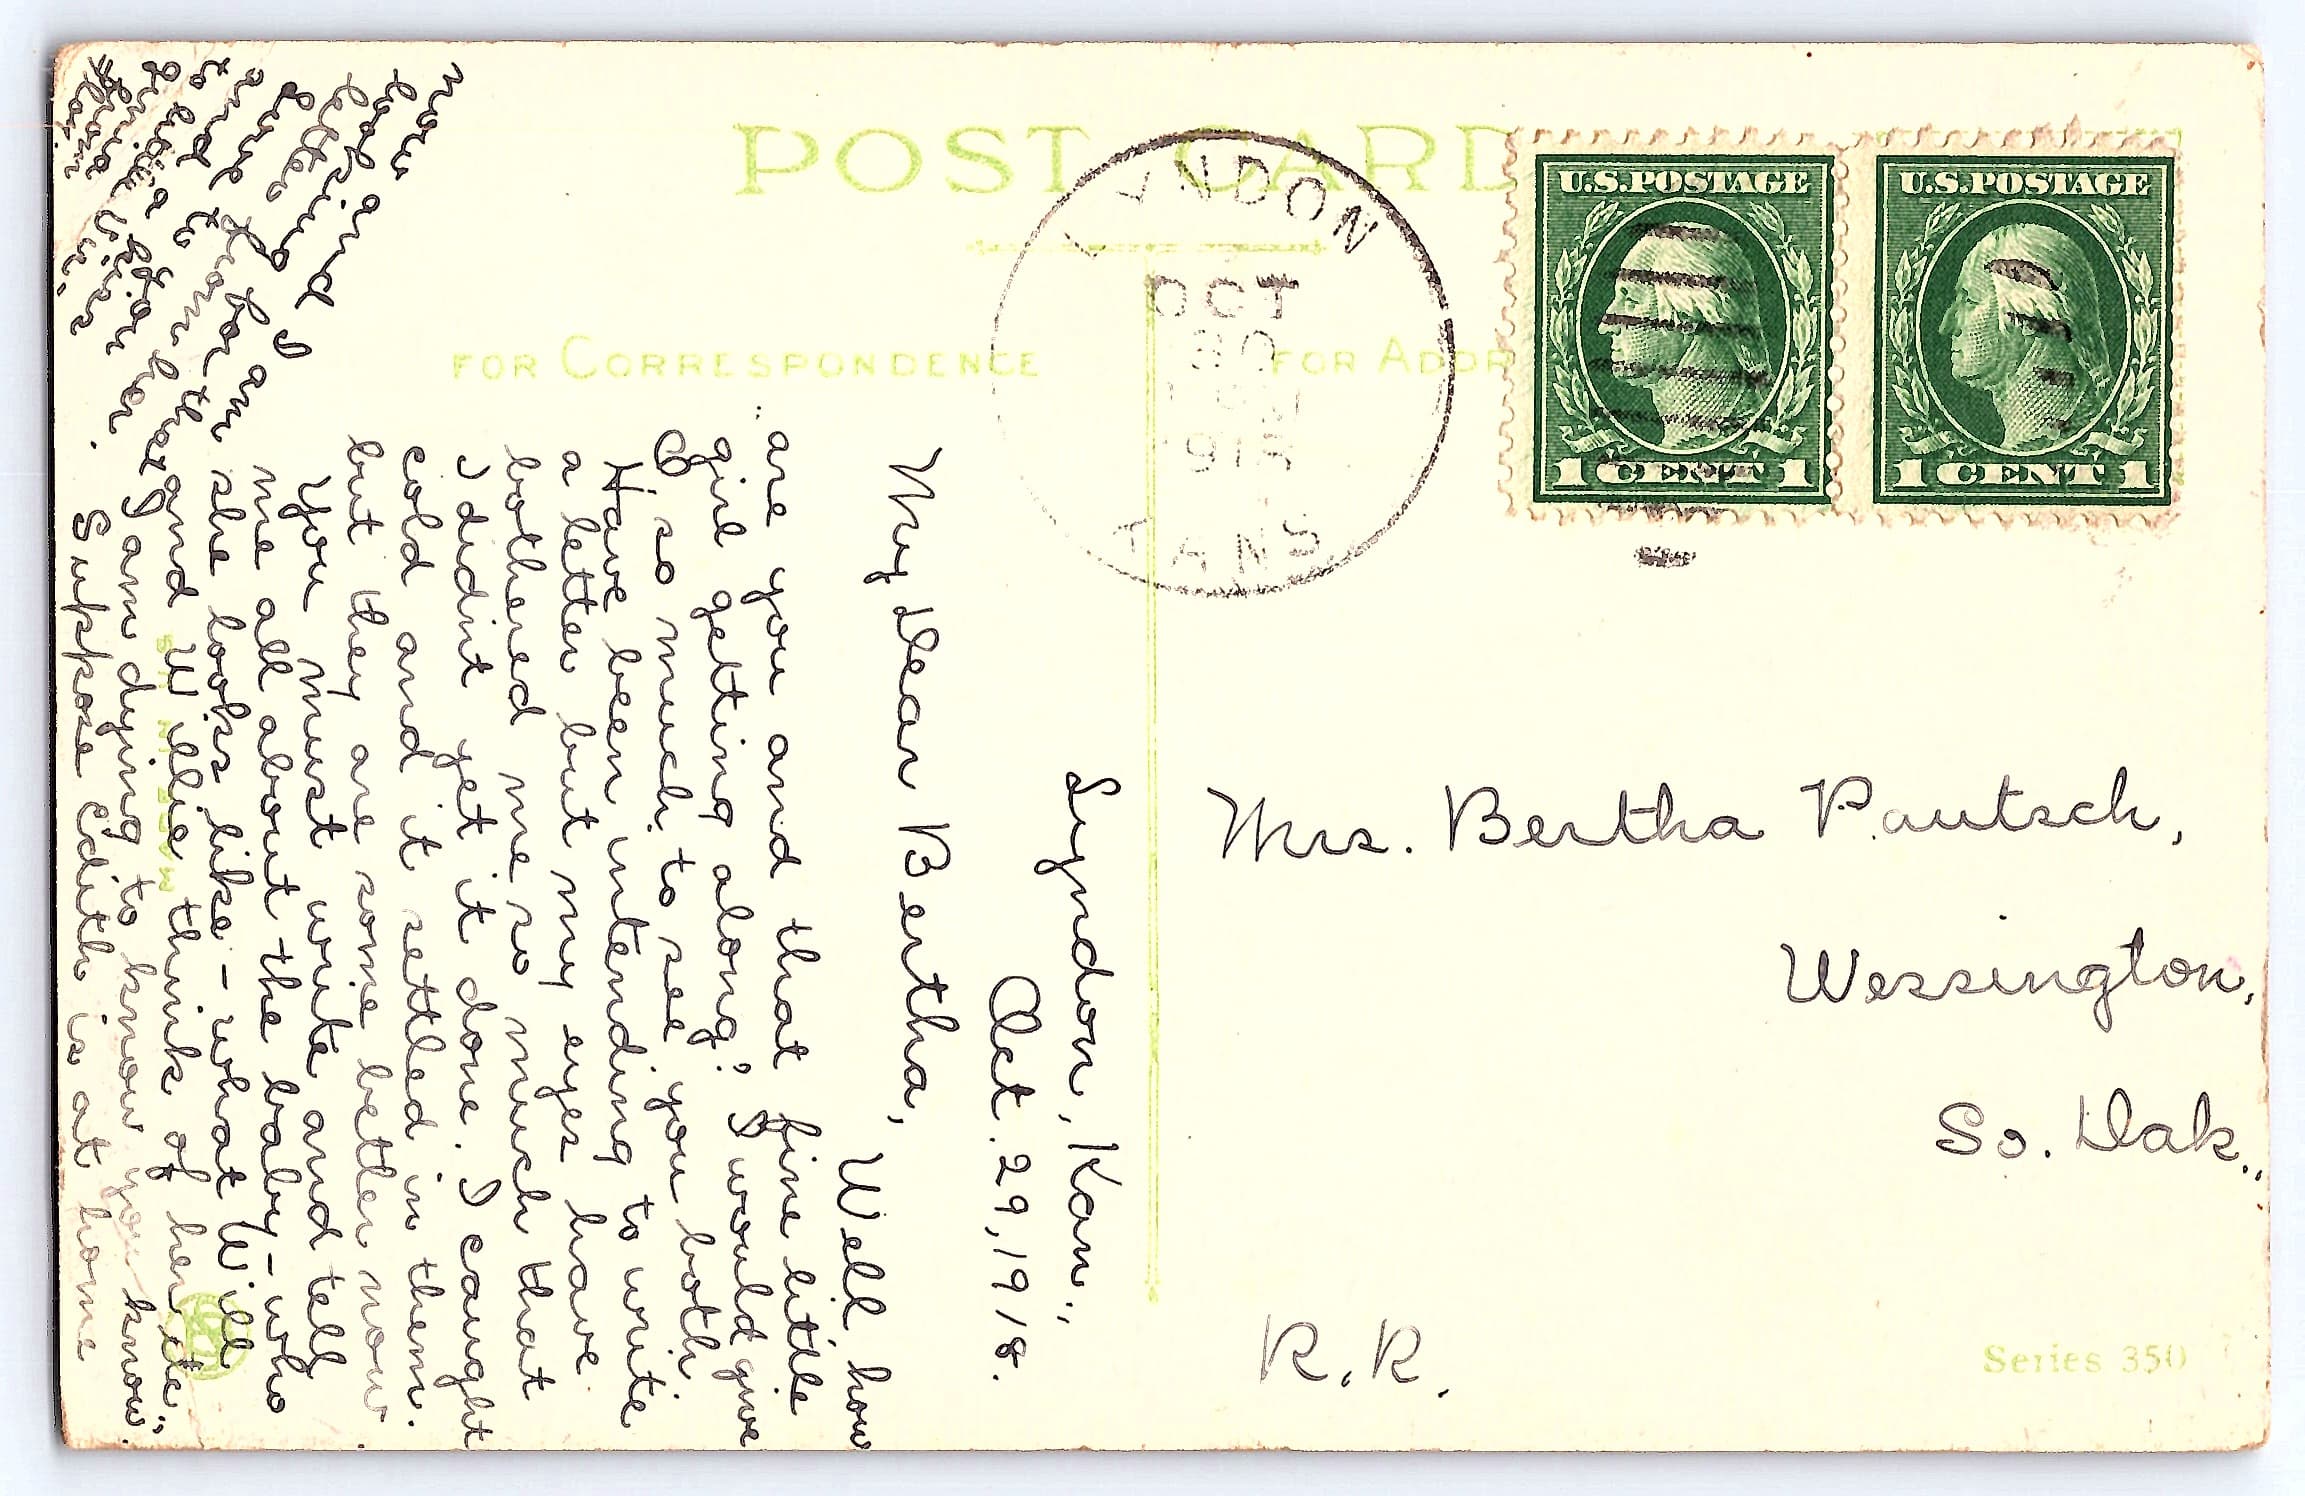 POST CARD
FOR CORRESPONDENCE
FOR ADDR
LYNDON
OCT
30
191
KANS
U.S.POSTAGE
1 CENT 1
U.S.POSTAGE
1 CENT 1
Mrs. Bertha Pautsch,
Wessington,
So. Dak.,
R.R.
Series 350
Lyndon, Kan.,
Oct. 29, 1918.
My Dear Bertha,
Well how
are you and that fine little
girl getting along? I would give
so much to see you both.
Have been intending to write
a letter but my eyes have
bothered me so much that
I didnt yet it done. I caught
cold and it settled in them.
but they are some better now.
You must write and tell
me all about the baby - who
she looks like - what Will
and Willie think of her etc.,
I am dying to know you know.
Suppose Edith is at home
now and I
look
letter